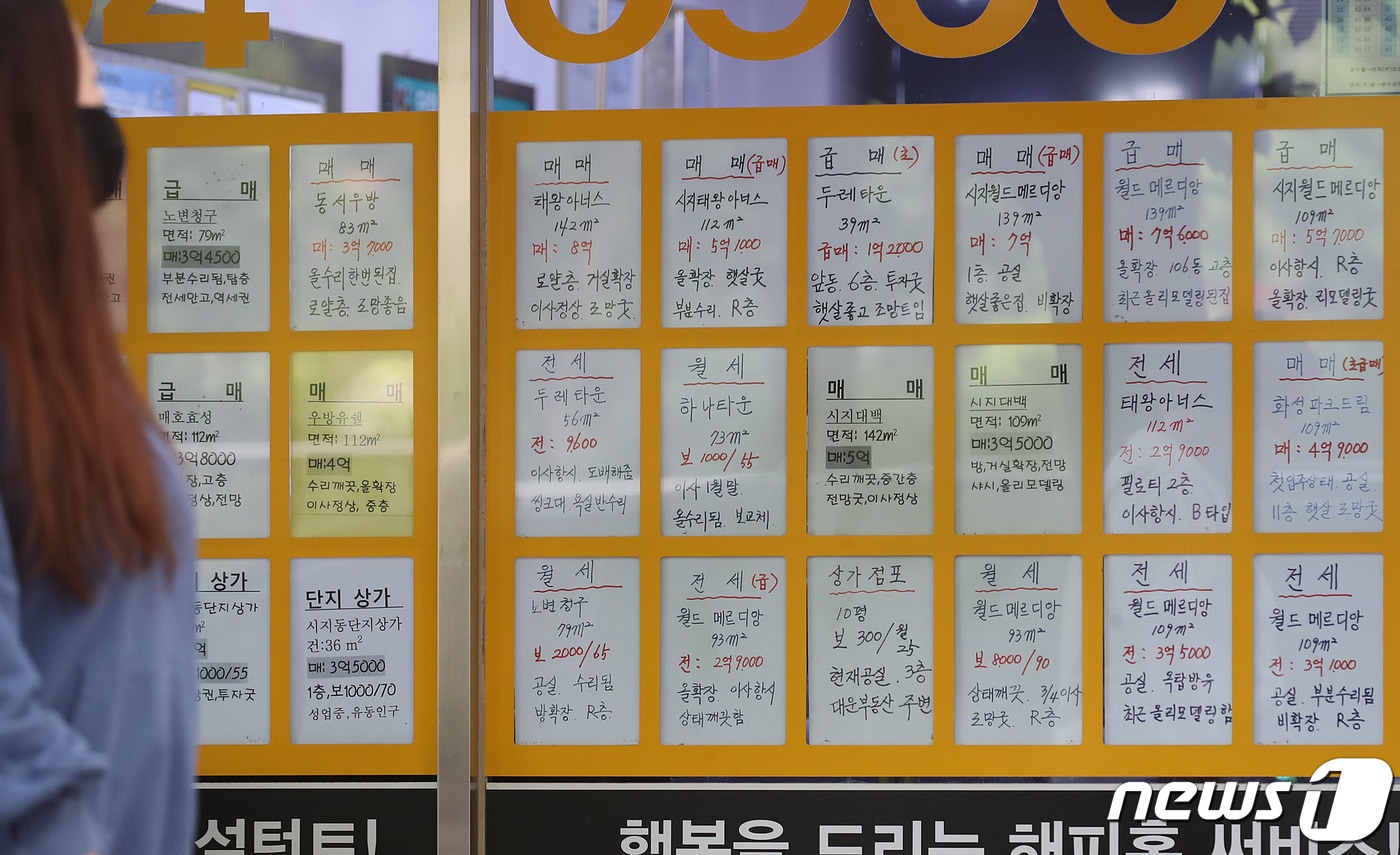 급 매
노변청구
면적: 79m²
매:3억4500
부분수리됨,탑층
전세안고,역세권
매 매
동서우방
83m²
매: 3억 7,000
올수리한번된집.
로얄층. 조망좋음
매 매
태왕아너스
142m²
매: 8억
로얄층. 거실확장
이사정상 조망굿.
매 매(급매)
시지태왕아너스
112m²
매: 5억 1,000
올확장. 햇살굿
부분수리. R층
급 매(초)
두레타운
39m²
급매: 1억 2,000
앞동. 6층. 투자굿
햇살좋고 조망트임
매 매(급매)
시지월드메르디앙
139m²
매: 7억
1층. 공실
햇살좋은집. 비확장
급 매
월드메르디앙
139m²
매: 7억 6,000
올확장. 106동 고층
최근올리모델링된집
급 매
시지월드메르디앙
109m²
매: 5억 7,000
이사항시. R층
올확장. 리모델링굿
급 매
매호효성
면적: 112m²
3억8000
장,고층
정상,전망
매 매
우방유쉘
면적: 112m²
매:4억
수리깨끗,올확장
이사정상, 중층
전 세
두레타운
56m²
전: 9,600
이사항시. 도배해줌
씽크대. 욕실반수리
월 세
하나타운
73m²
보 1000/55
이사 1월말.
올수리됨. 보교체.
매 매
시지대백
면적: 142m²
매:5억
수리깨끗,중간층
전망굿,이사정상
매 매
시지대백
면적: 109m²
매:3억5000
방,거실확장,전망
샤시,올리모델링
전 세
태왕아너스
112m²
전: 2억 9000
필로티 2층.
이사항시. B타입
매 매(초급매)
화성파크드림
109m²
매: 4억 9,000
첫입주상태. 공실.
11층 햇살 조망굿
상가
동단지상가
m²
억
1000/55
권,투자굿
단지 상가
시지동단지상가
건:36 m²
매: 3억5000
1층,보1000/70
성업중,유동인구
월 세
노변청구
79m²
보 2000/65
공실. 수리됨
방확장. R층.
전 세(급)
월드메르디앙
93m²
전: 2억 9000
올확장 이사항시
상태깨끗함
상가점포
10평
보 300/월 25
현재공실. 3층
대운부동산 주변
월 세
월드메르디앙
93m²
보 8000/90
상태깨끗. 3/4이사
조망굿. R층
전 세
월드메르디앙
109m²
전: 3억 5000
공실. 옥탑방유
최근올리모델링함
전 세
월드메르디앙
109m²
전: 3억 1000
공실. 부분수리됨
비확장. R층
설턴트!
행복을 드리는 해피홈 써비스
news1